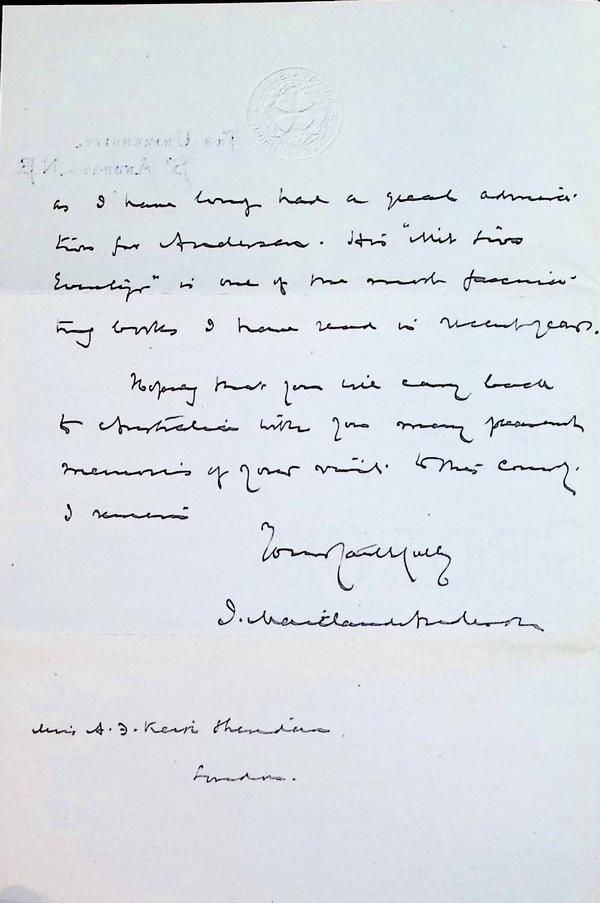 The University,
St Andrews, N.B.
as I have long had a great admira-
tion for Andersen. His "Mit Livs
Eventyr" is one of the most fascina-
ting books I have read in recent years.
Hoping that you will carry back
to Australia with you many pleasant
memories of your visit to this country.
I remain
Yours faithfully
J. Maitland Anderson
Miss A. Sheridan
London.